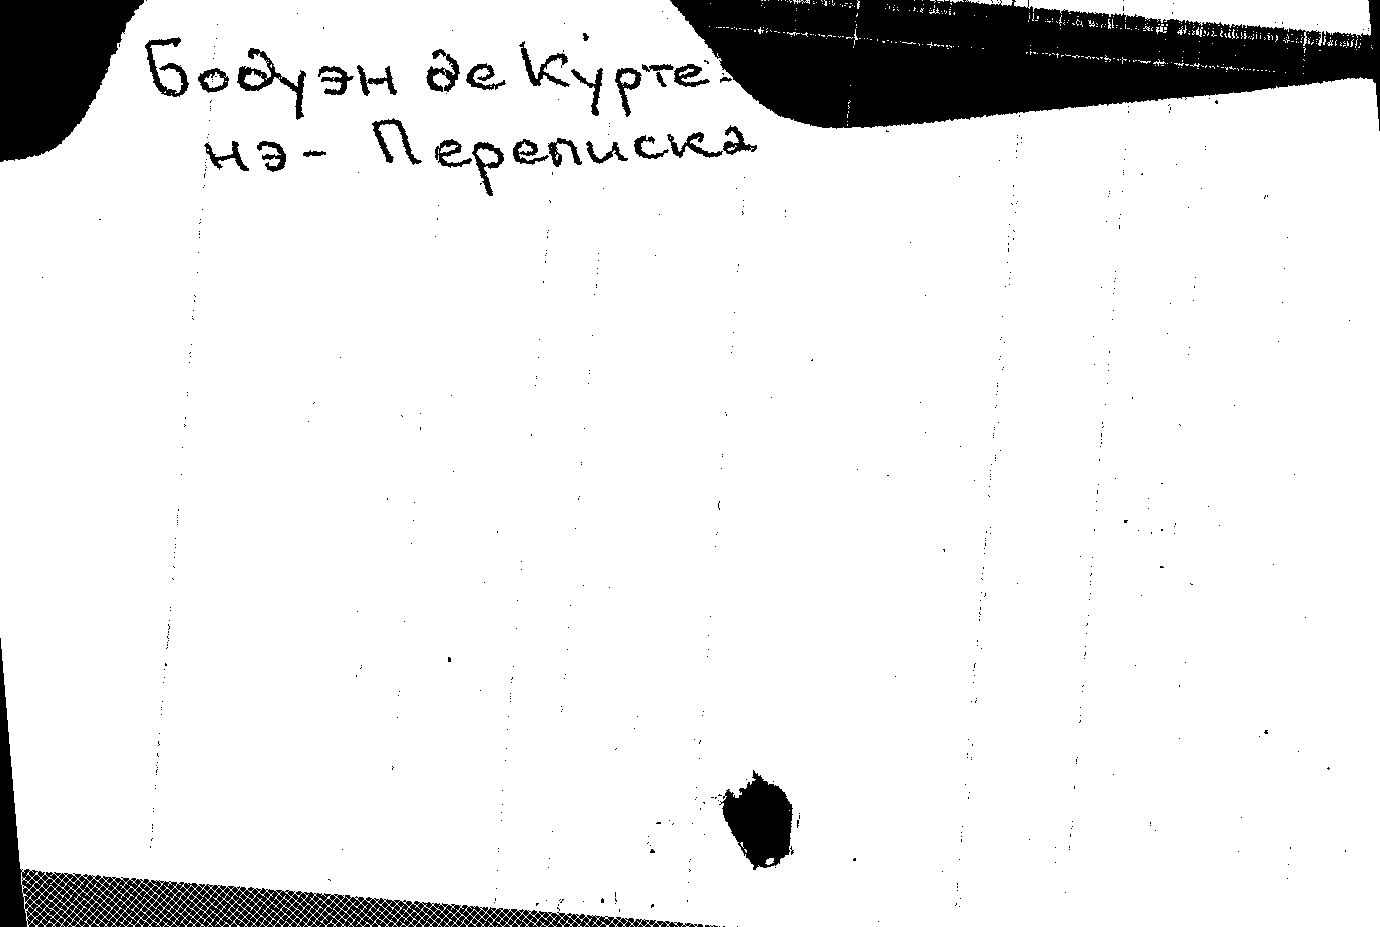 Бодуэн де Курте-
нэ- Переписка